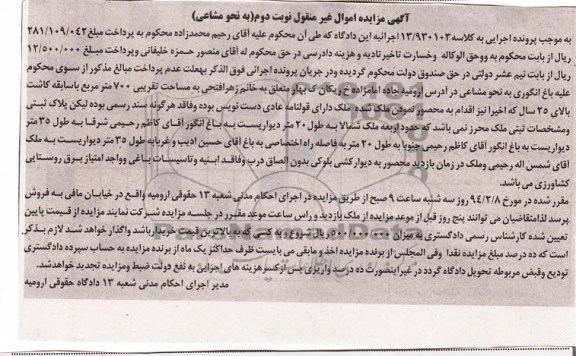 آگهی مزایده اموال غیر منقول نوبت دوم(به نحو مشاعی)
به موجب پرونده اجرایی به کلاسه ۱۳/۹۳۰۱۰۳ اجرائیه این دادگاه که طی آن محکوم علیه آقای رحیم محمدزاده محکوم به پرداخت مبلغ ۲۸۱/۱۰۹/۰۴۲
ریال از بابت محکوم به ووحق الوکاله وخسارت تاخیر تادیه و هزینه دادرسی در حق محکوم له آقای منصور حمزه خلیفانی وپرداخت مبلغ ۱۲/۵۰۰/۰۰۰
ریال از بابت نیم عشر دولتی در حق صندوق دولت محکوم گردیده ودر جریان پرونده اجرائی فوق الذکر بهعلت عدم پرداخت مبالغ مذکور از سوی محکوم
علیه باغ انگوری به نحو مشاعی در آدرس ارومیه جاده امامزاده خ ریکان ک بهار متعلق به خانم زهرافتحی به مساحت تقریبی ۷۰۰ متر مربع باسابقه کاشت
بالای ۲۵ سال که اخیرا نیز اقدام به محصور نمودن ملک شده ملک دارای قولنامه عادی دست نویس بوده وفاقد هرگونه سند رسمی بوده لیکن پلاک ثبتی
ومشخصات ثبتی ملک محرز نمی باشد که حدود اربعه ملک شمالا به طول ۲۰ متر دیواریست به باغ انگور آقای کاظم رحیمی شرقا به طول ۳۵ متر
دیواریست به باغ انگور آقای کاظم رحیمی جنوبا به طول ۲۰ متر به فاصله راه اختصاصی به باغ اقای حسین ادیب و غربابه طول ۳۵ متر دیواریست به ملک
اقای شمس اله رحیمی وملک در زمان بازدید محصور به دیوارکشی بلوکی بدون الصاق درب وفاقد ابنیه وتاسیسات باغی وواجد امتیاز برق روستایی
کشاورزی می باشد.
مقرر شده در مورخ ۹۴/۲/۸ روز سه شنبه ساعت ۹ صبح از طریق مزایده در اجرای احکام مدنی شعبه ۱۳ حقوقی ارومیه واقع در خیابان مافی به فروش
برسد لذامتقاضیان می توانند پنج روز قبل از موعد مزایده از ملک بازدید و راس ساعت موعد مقرر در جلسه مزایده شرکت نمایند مزایده از قیمت پایین
تعیین شده کارشناس رسمی دادگستری به میزان ریال شروع و به کسی که به بالاترین قیمت خریدار باشد واگذار خواهد شد لازم بذکر
است که ده درصد مبلغ مزایده نقدا وفی المجلس از برنده مزایده اخذ و مابقی می بایست ظرف حداکثر یک ماه از برنده مزایده به حساب سپرده دادگستری
تودیع وقبض مربوطه تحویل دادگاه گردد در غیر اینصورت ده درصد واریزی پس از کسر هزینه های اجرایی به نفع دولت ضبط ومزایده تجدید خواهدشد.
مدیر اجرای احکام مدنی شعبه ۱۳ دادگاه حقوقی ارومیه